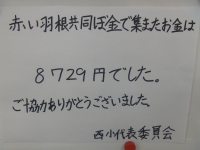 赤い羽根共同ぼ金で集またお金は
8729円でした。
ご協力ありがとうございました。
西小代表委員会